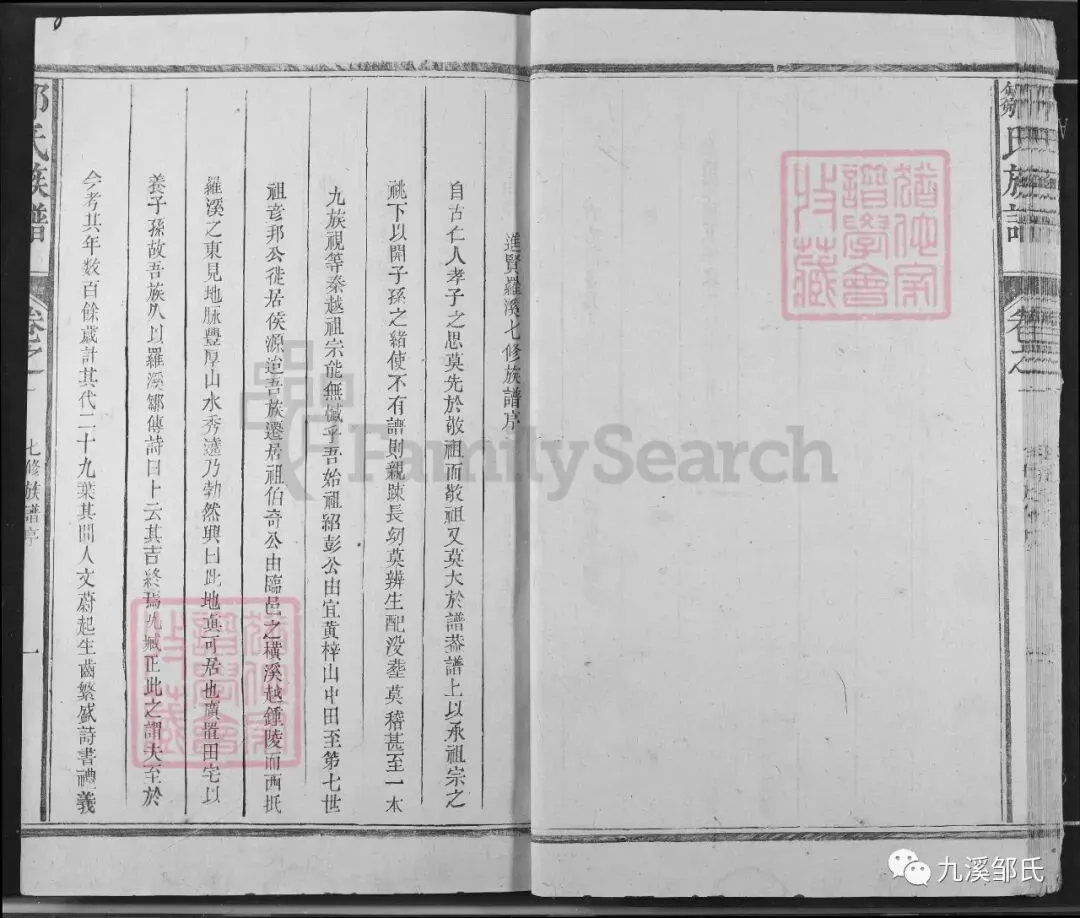 鄒氏族譜
卷之
進賢羅溪七修族譜序
自古仁人孝子之思莫先於敬祖而敬祖又莫大於譜葢譜上以承祖宗之
祧下以開子孫之緒使不有譜則親踈長幼莫辨生配没塟莫稽甚至一本
九族視等秦越祖宗能無憾乎吾始祖紹彭公由宜黄梓山中田至第七世
祖彦邦公徙居侯源迨吾族遷居祖伯奇公由臨邑之横溪越鍾陵而西抵
羅溪之東見地脉豐厚山水秀遠乃勃然興曰此地眞可居也廣置田宅以
養子孫故吾族久以羅溪鄒傳詩曰卜云其吉終焉允臧正此之謂夫至於
今考其年数百餘歲計其代二十九葉其間人文蔚起生齒繁盛詩書禮義
鄒氏族譜
卷之
七修族譜序
一
譜學會
收藏
譜學會
收藏
FamilySearch
九溪邹氏